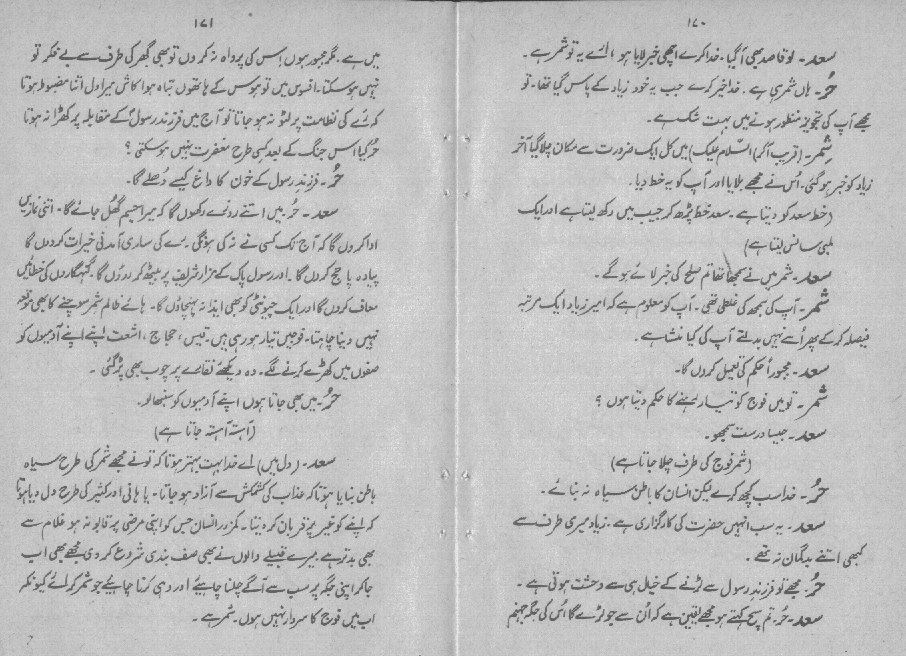 ۱۷۰
سعد۔ لو قاصد بھی آ گیا۔ خدا کرے اچھی خبر لایا ہو، ارے یہ تو شمر ہے۔
حُر۔ ہاں شمر ہی ہے۔ خدا خیر کرے جب یہ خود زیاد کے پاس گیا تھا۔ تو
مجھے آپ کی تجویز منظور ہونے میں بہت شک ہے۔
شمر۔ (قریب آ کر) السّلام علیک) میں کل ایک ضرورت سے مکان چلا گیا آخر
زیاد کو خبر ہو گئی۔ اُس نے مجھے بلایا اور آپ کو یہ خط دیا۔
(خط سعد کو دیتا ہے۔ سعد خط پڑھ کر جیب میں رکھ لیتا ہے اور ایک
لمبی سانس لیتا ہے)
سعد۔ شمر میں نے سمجھا تھا تم صلح کی خبر لائے ہو گے۔
شمر۔ آپ کی سمجھ کی غلطی تھی۔ آپ کو معلوم ہے کہ امیر زیاد ایک مرتبہ
فیصلہ کر کے پھر اُسے نہیں بدلتے آپ کی کیا منشا ہے۔
سعد۔ مجبوراً حکم کی تعمیل کروں گا۔
شمر۔ تو میں فوج کو تیار رہنے کا حکم دیتا ہوں؟
سعد۔ جیسا درست سمجھو۔
(شمر فوج کی طرف چلا جاتا ہے)
حُر۔ خدا سب کچھ کرے لیکن انسان کا باطن سیاہ نہ بنائے۔
سعد۔ یہ سب انہیں حضرت کی کارگزاری ہے۔ زیاد میری طرف سے
کبھی اتنے بدگمان نہ تھے۔
حُر۔ مجھے تو فرزندِ رسول سے لڑنے کے خیال ہی سے وحشت ہوتی ہے۔
سعد۔ حُر۔ تم سچ کہتے ہو مجھے یقین ہے کہ اُن سے جو لڑے گا اُس کی جگہ جہنم
۱۷۱
میں ہے۔ مگر مجبور ہوں اِس کی پرواہ نہ کروں تو بھی گھر کی طرف سے بے فکر تو
نہیں ہو سکتا۔ افسوس میں تو ہوس کے ہاتھوں تباہ ہوا کاش میرا دل اتنا مضبوط ہوتا
کہ رَے کی نظامت پر لٹو نہ ہو جاتا تو آج میں فرزندِ رسولؐ کے مقابلہ پر کھڑا نہ ہوتا
حُر کیا اس جنگ کے بعد کسی طرح مغفرت نہیں ہو سکتی؟
حُر۔ فرزندِ رسول کے خون کا داغ کیسے دُھلے گا۔
سعد۔ حُر میں اتنے روزے رکھوں گا کہ میرا جسم گھُل جائے گا۔ اتنی نمازیں
ادا کروں گا کہ آج تک کسی نے نہ کی ہونگی۔ رے کی ساری آمدنی خیرات کر دوں گا
پیادہ پا حج کروں گا۔ اور رسول پاک کے مزار شریف پر بیٹھ کر روؤں گا۔ گنہگاروں کی خطائیں
معاف کروں گا اور ایک چیونٹی کو بھی ایذا نہ پہنچاؤں گا۔ ہائے ظالم شمر سوچنے کا بھی موقعہ
نہیں دینا چاہتا۔ فوجیں تیار ہو رہی ہیں۔ قیس، حجاج، اشعث اپنے اپنے آدمیوں کو
صفوں میں کھڑے کرنے لگے۔ وہ دیکھئے نقارے پر چوب بھی پڑ گئی۔
حُر۔ میں بھی جاتا ہوں اپنے آدمیوں کو سنبھالو۔
(آہستہ آہستہ جاتا ہے)
سعد۔ (دل میں) اے خدا بہت بہتر ہوتا کہ تو نے مجھے شمر کی طرح سیاہ
باطن بنایا ہوتا کہ عذاب کی کشمکش سے آزاد ہو جاتا۔ یا ہانی اور کثیر کی طرح دل دیا ہوتا
کہ اپنے کو غیر پر قربان کر دیتا۔ کمزور انسان جس کو اپنی مرضی پر قابو نہ ہو غلام سے
بھی بدتر ہے میرے قبیلے والوں نے بھی صف بندی شروع کر دی مجھے بھی اب
جا کر اپنی جگہ پر سب سے آگے چلنا چاہیئے اور وہی کرنا چاہیئے جو شمر کرائے کیونکہ
اب میں فوج کا سردار نہیں ہوں۔ شمر ہے۔